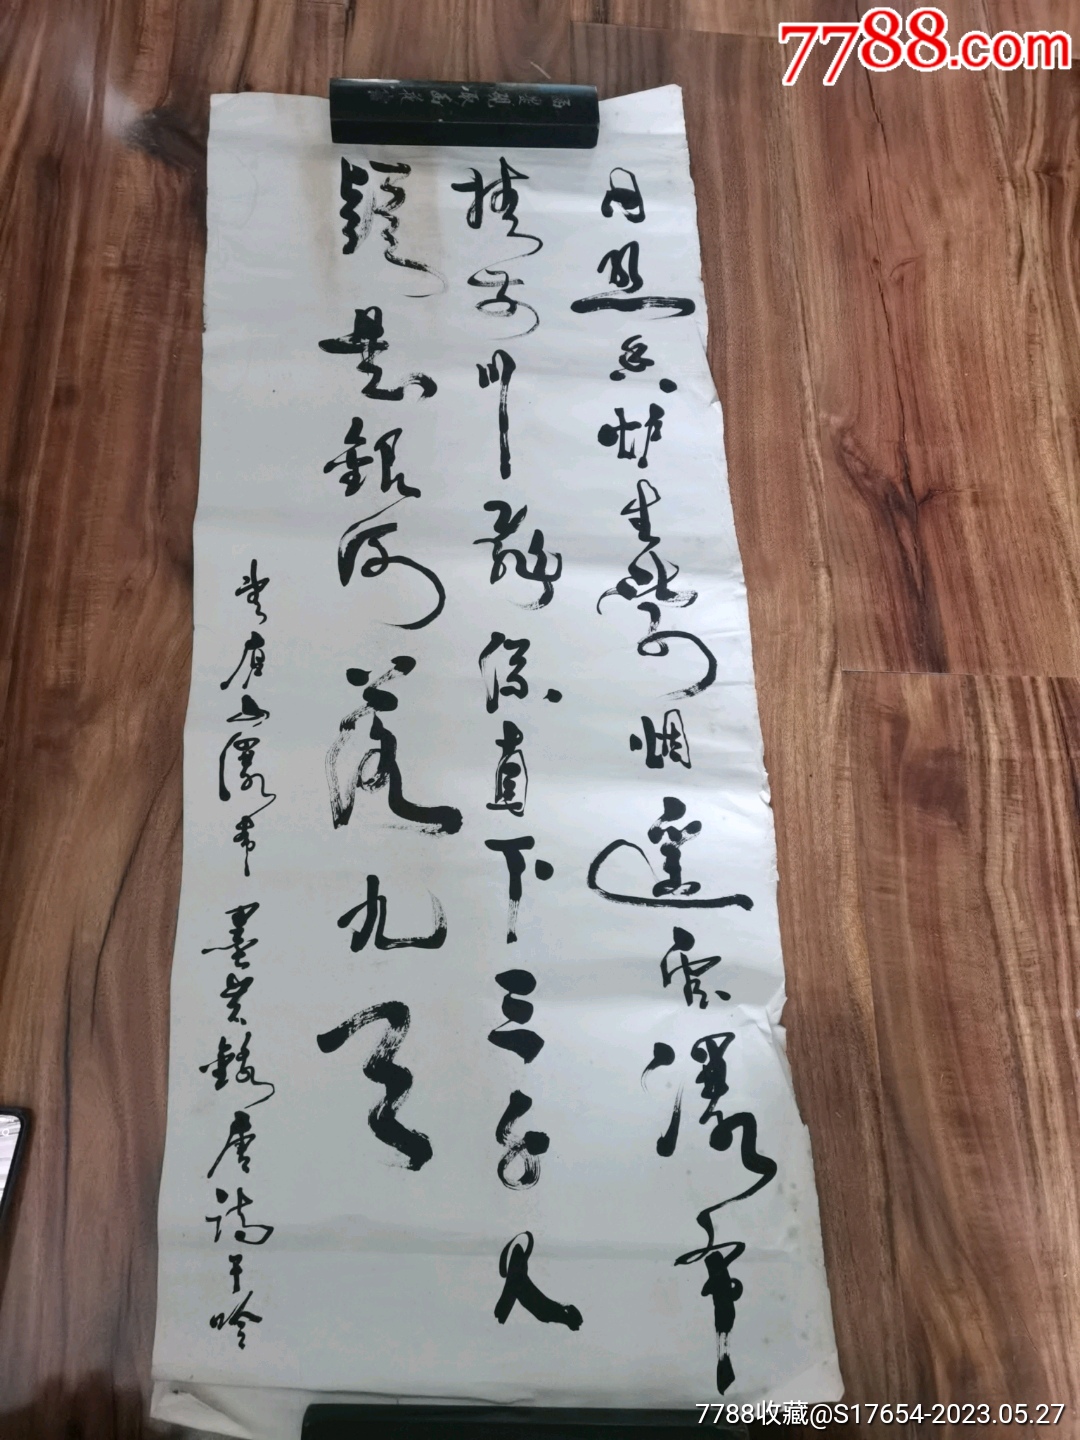 7788.com
日照香炉生紫烟遥看瀑布
挂前川飞流直下三千尺
疑是银河落九天
望庐山瀑布 墨岩录唐诗于
7788收藏@S17654-2023.05.27